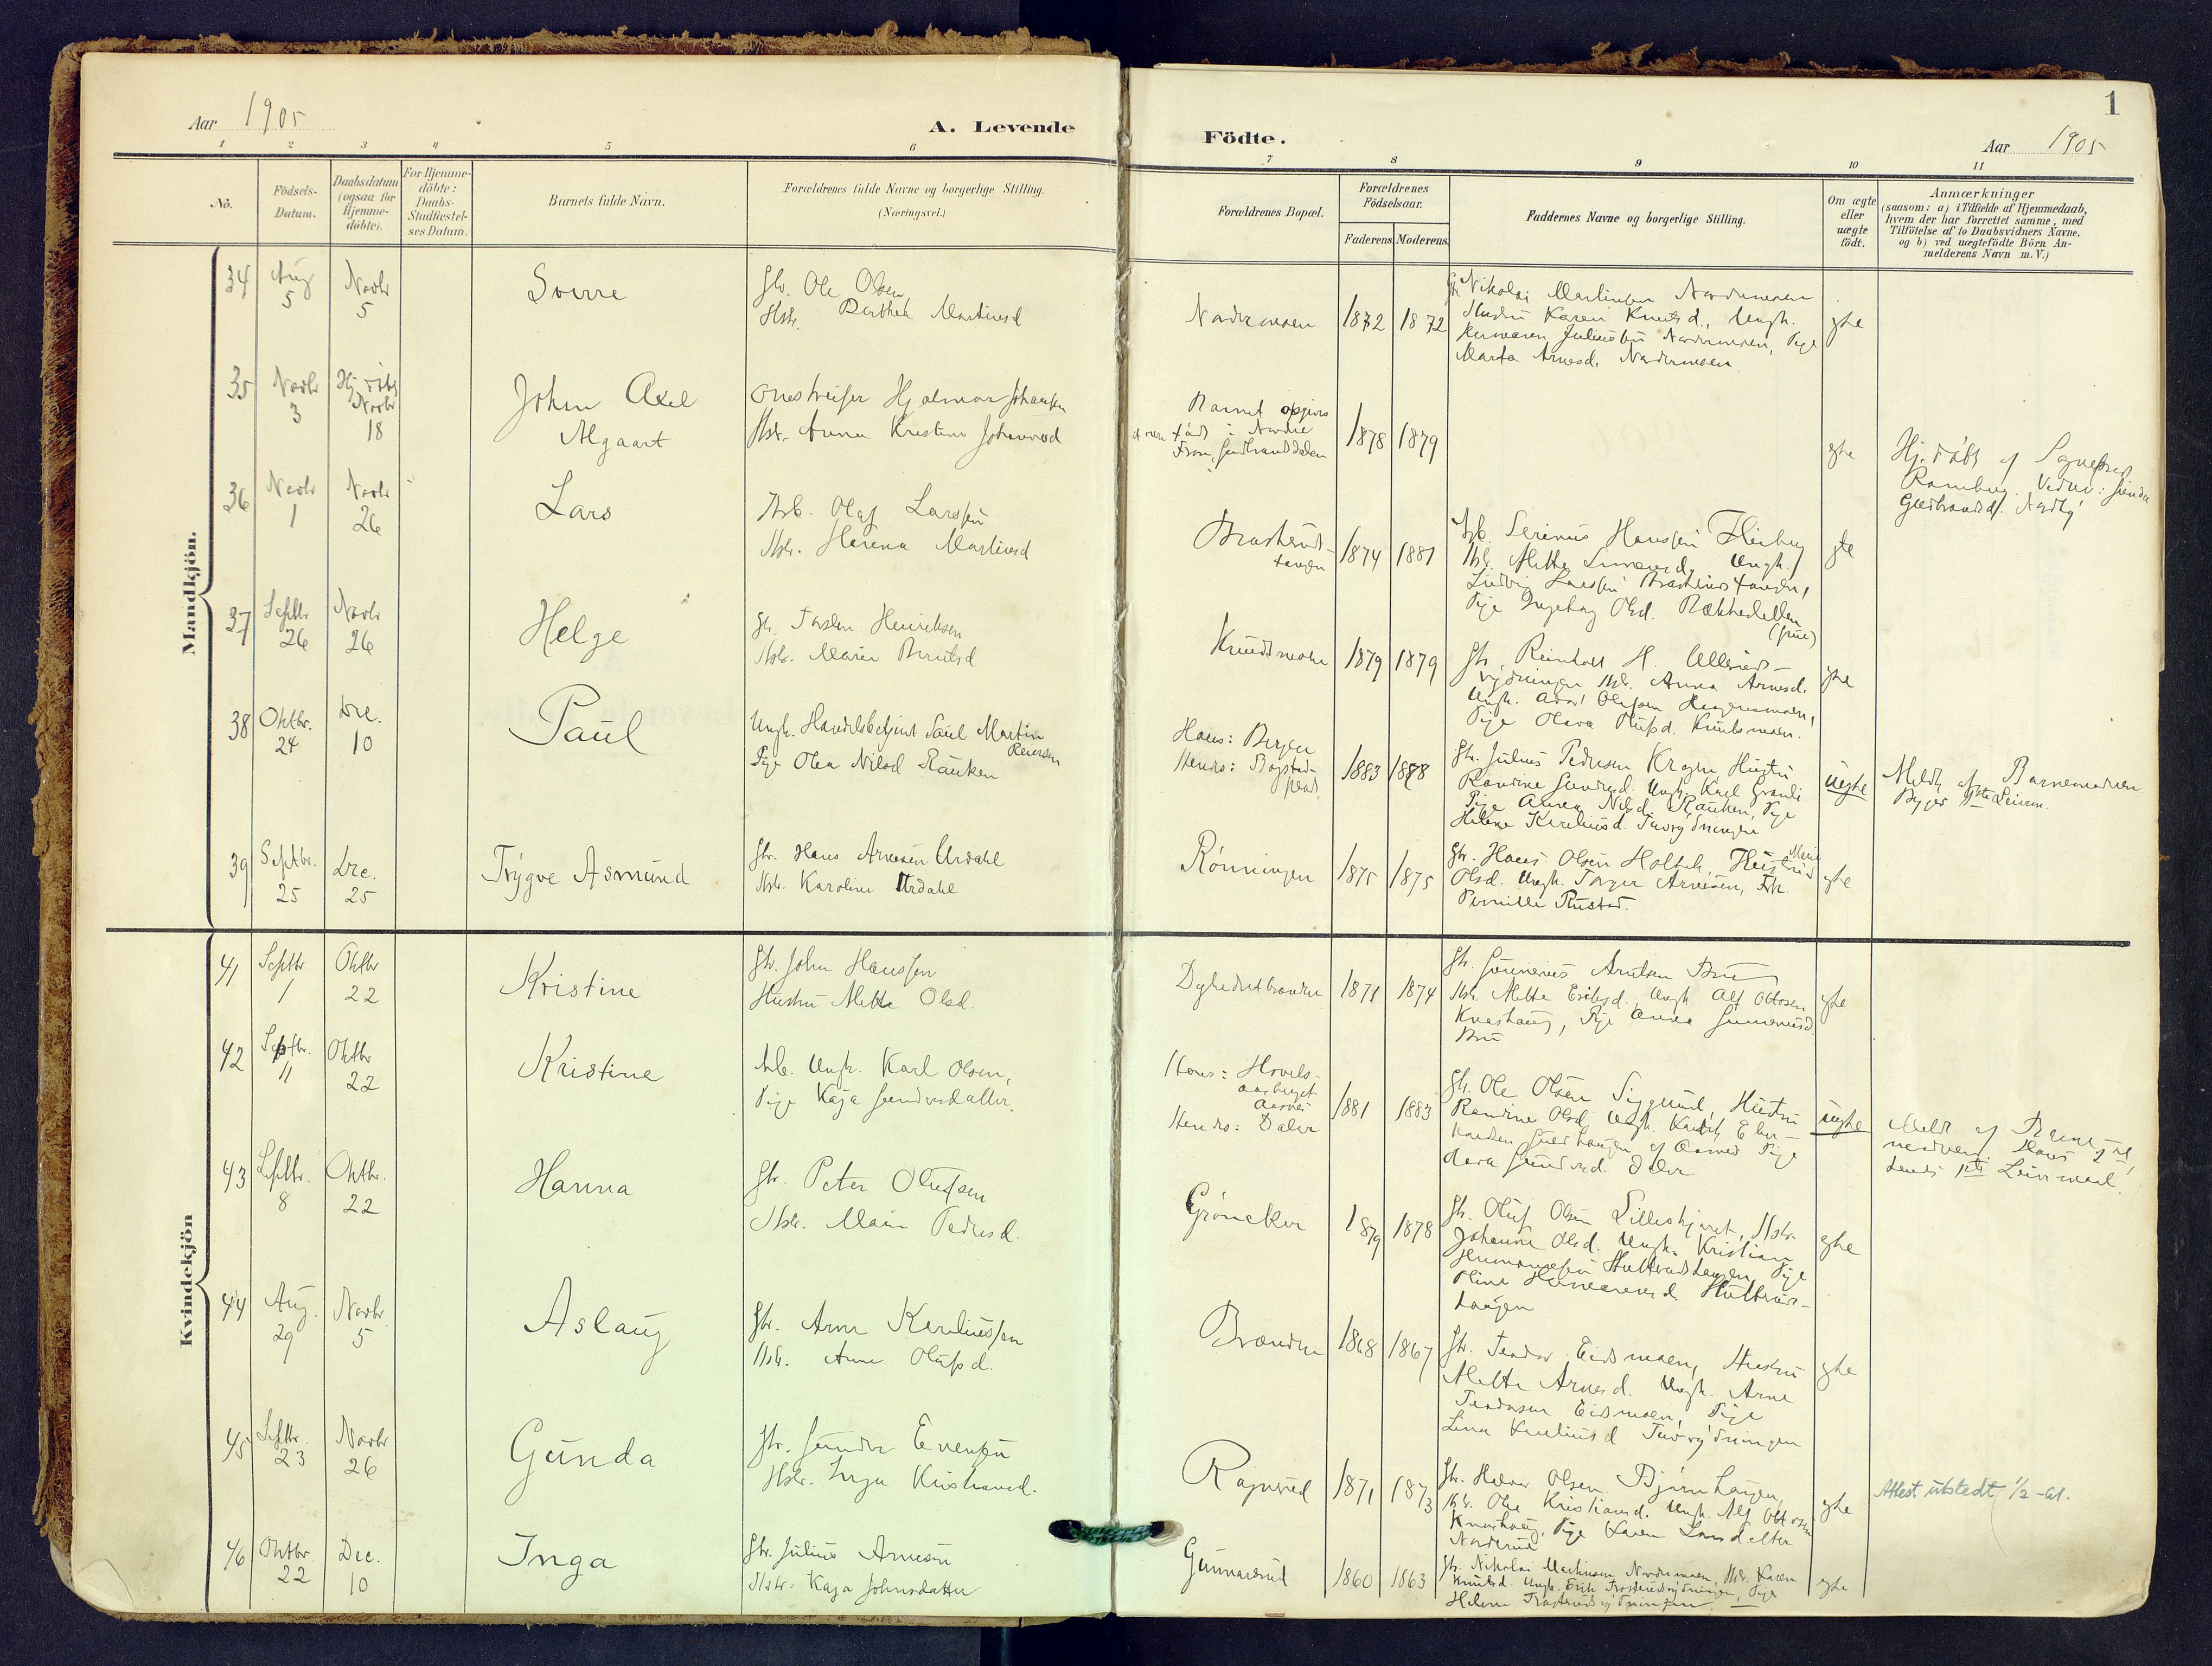 Aar 1905
A. Levende
Födte.
1
Aar 1905
1 2 3 4 5 6 7 8 9 10 11
Nö.
Födsels-
Datum.
Daabsdatum
(ogsaa for
Hjemme-
döbte).
For Hjemme-
döbte:
Daabs-
Stadfæstel-
ses Datum.
Barnets fulde Navn.
Forældrenes fulde Navne og borgerlige Stilling.
(Næringsvei.)
Forældrenes Bopæl.
Forældrenes
Födselsaar.
Faderens. Moderens.
Faddernes Navne og borgerlige Stilling.
Om ægte
eller
uægte
födt.
Anmærkninger
(saasom: a) i Tilfælde af Hjemmedaab,
hvem der har forrettet samme, med
Tilföielse af to Daabsvidners Navne.
og b) ved uægtefödte Börn An-
melderens Navn m.V.)
Mandkjön.
34 Aug 5 Novbr 5
Sverre
Gbr. Ole Olsen
Hstr. Berthea Martinsd
Nordermoen 1872 1872
Gbr. Nikolai Martinsen Nordermoen
Hustru Karen Knutsd., Ungk.
Juliussen Nordermoen, Pige
Marta Arnesd. Nordermoen
egte
35 Novbr 3 Hj. döbt Novbr 18
John Axel
Algaart
Hjalmar Johansen
Hstr. Anna Kristine Johannesd
Barnet opgives
at være född i Nordre
Fron, Gudbrandsdalen
1878 1879
egte
Hj. döbt af Sogneprest
Ramberg
36 Novbr 1 Novbr 26
Lars
Arb. Olaf Larssen
Hstr. Martinsd
Braskerud-
tangen
1874 1881
Arb. Serinus Hanssen
Mette Ungk.
Ludvig Larssen Braskerudtangen,
Pige Ingeborg Olsd.
egte
37 Septbr 26 Novbr 26
Helge
Gbr. Torsten Henriksen
Hstr. Marie Berntsd
Knudsmoen 1879 1879
Gbr. Reinholt H. Ullerud-
rydningen Hstr. Anna Arnesd.
Ungk. Olafsen
Pige Olava Olufsd. Knutsmoen.
egte
38 Oktbr. 24 Dec. 10
Paul
Ungk. Handelsbetjent Paul Martin
Reiersen
Pige Olea Nilsd Rauken
Hans: Bergen
Hendes:
1883 1888
Gbr. Julius Pedersen Hustru
Randine Gundersd. Ungk. Karl
Pige Anna Nilsd. Rauken, Pige
Helene Kareliusd.
uegte
Meldt af Barnemoderen
Begges 1ste Leierm.
39 Septbr. 25 Dec. 25
Trygve Asmund
Gbr. Hans Arnesen Urdahl
Hstr. Karoline Urdahl
Rönningen 1875 1875
Gbr. Hans Olsen Holteh, Hustru Marie
Olsd. Ungk. Torger Arnesen, Frk
Pernille Rustad.
egte
Kvindekjön
41 Septbr 1 Oktbr 22
Kristine
Gbr. John Hanssen
Hustru Mette Olsd.
1871 1874
Gbr. Gunnerius Arntsen Bru
Hstr. Mette Eriksd., Ungk. Alf Ottosen
Knashaug, Pige Anna Gunneriusd.
Bru
egte
42 Septbr. 11 Oktbr 22
Kristine
Arb. Ungk. Karl Olsen,
Pige Kaja Gundersdatter.
Hans:
Aasnes
Hendes: Dalen
1881 1883
Gbr. Ole Olsen Siggerud, Hustru
Randine Olsd. Ungk.
af Aasnes Pige
Gundersd. Dalen
uegte
Meldt af Barne-
moderen. Hans 2det,
hendes 1ste Leiermaal.
43 Septbr. 8 Oktbr. 22
Hanna
Gbr. Peter Olufsen
Hstr. Marie Pedersd.
Grönaker 1879 1878
Gbr. Oluf Olsen Lillehjernet, Hstr.
Johanne Olsd. Ungk. Kristian
Pige
Oline
egte
44 Aug. 29 Novbr. 5
Aslaug
Gbr. Arne Kareliussen
Hstr. Anne Olufsd.
Brænden 1868 1867
Gbr. Teodor Eidsmoen, Hustru
Mette Arnesd. Ungk. Arne
Teodorsen Eidsmoen, Pige
Lina Kareliusd
egte
45 Septbr. 23 Novbr 26
Gunda
Gbr. Gunder Evensen
Hstr. Inga Kristiansd.
Rognerud 1871 1873
Gbr. Halvor Olsen Björnhaugen,
Hstr. Olea Kristiansd. Ungk. Alf Ottosen
Knashaug, Pige Karen Larsdatter
Norderud
egte
Attest utstedt 1/2-41.
46 Oktbr. 22 Dec. 10
Inga
Gbr. Julius Arnesen
Hstr. Kaja Johnsdatter
Gunnarsrud 1860 1863
Gbr. Nikolai Martinsen Nordermoen, Hstr. Karen
Knutsd. Ungk. Erik Trosterudrydningen, Pige
Helene Trosterudrydningen
egte